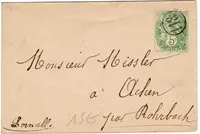 5
Monsieur Missler
à Achen
par Rohrbach